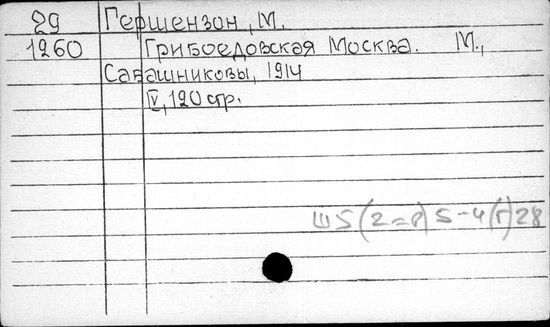 29 Гершензон, М.
1260 Грибоедовская Москва. М.,
Сабашниковы, 1914
IV, 120 стр.
Ш5(2=Р)5-4(Г)28